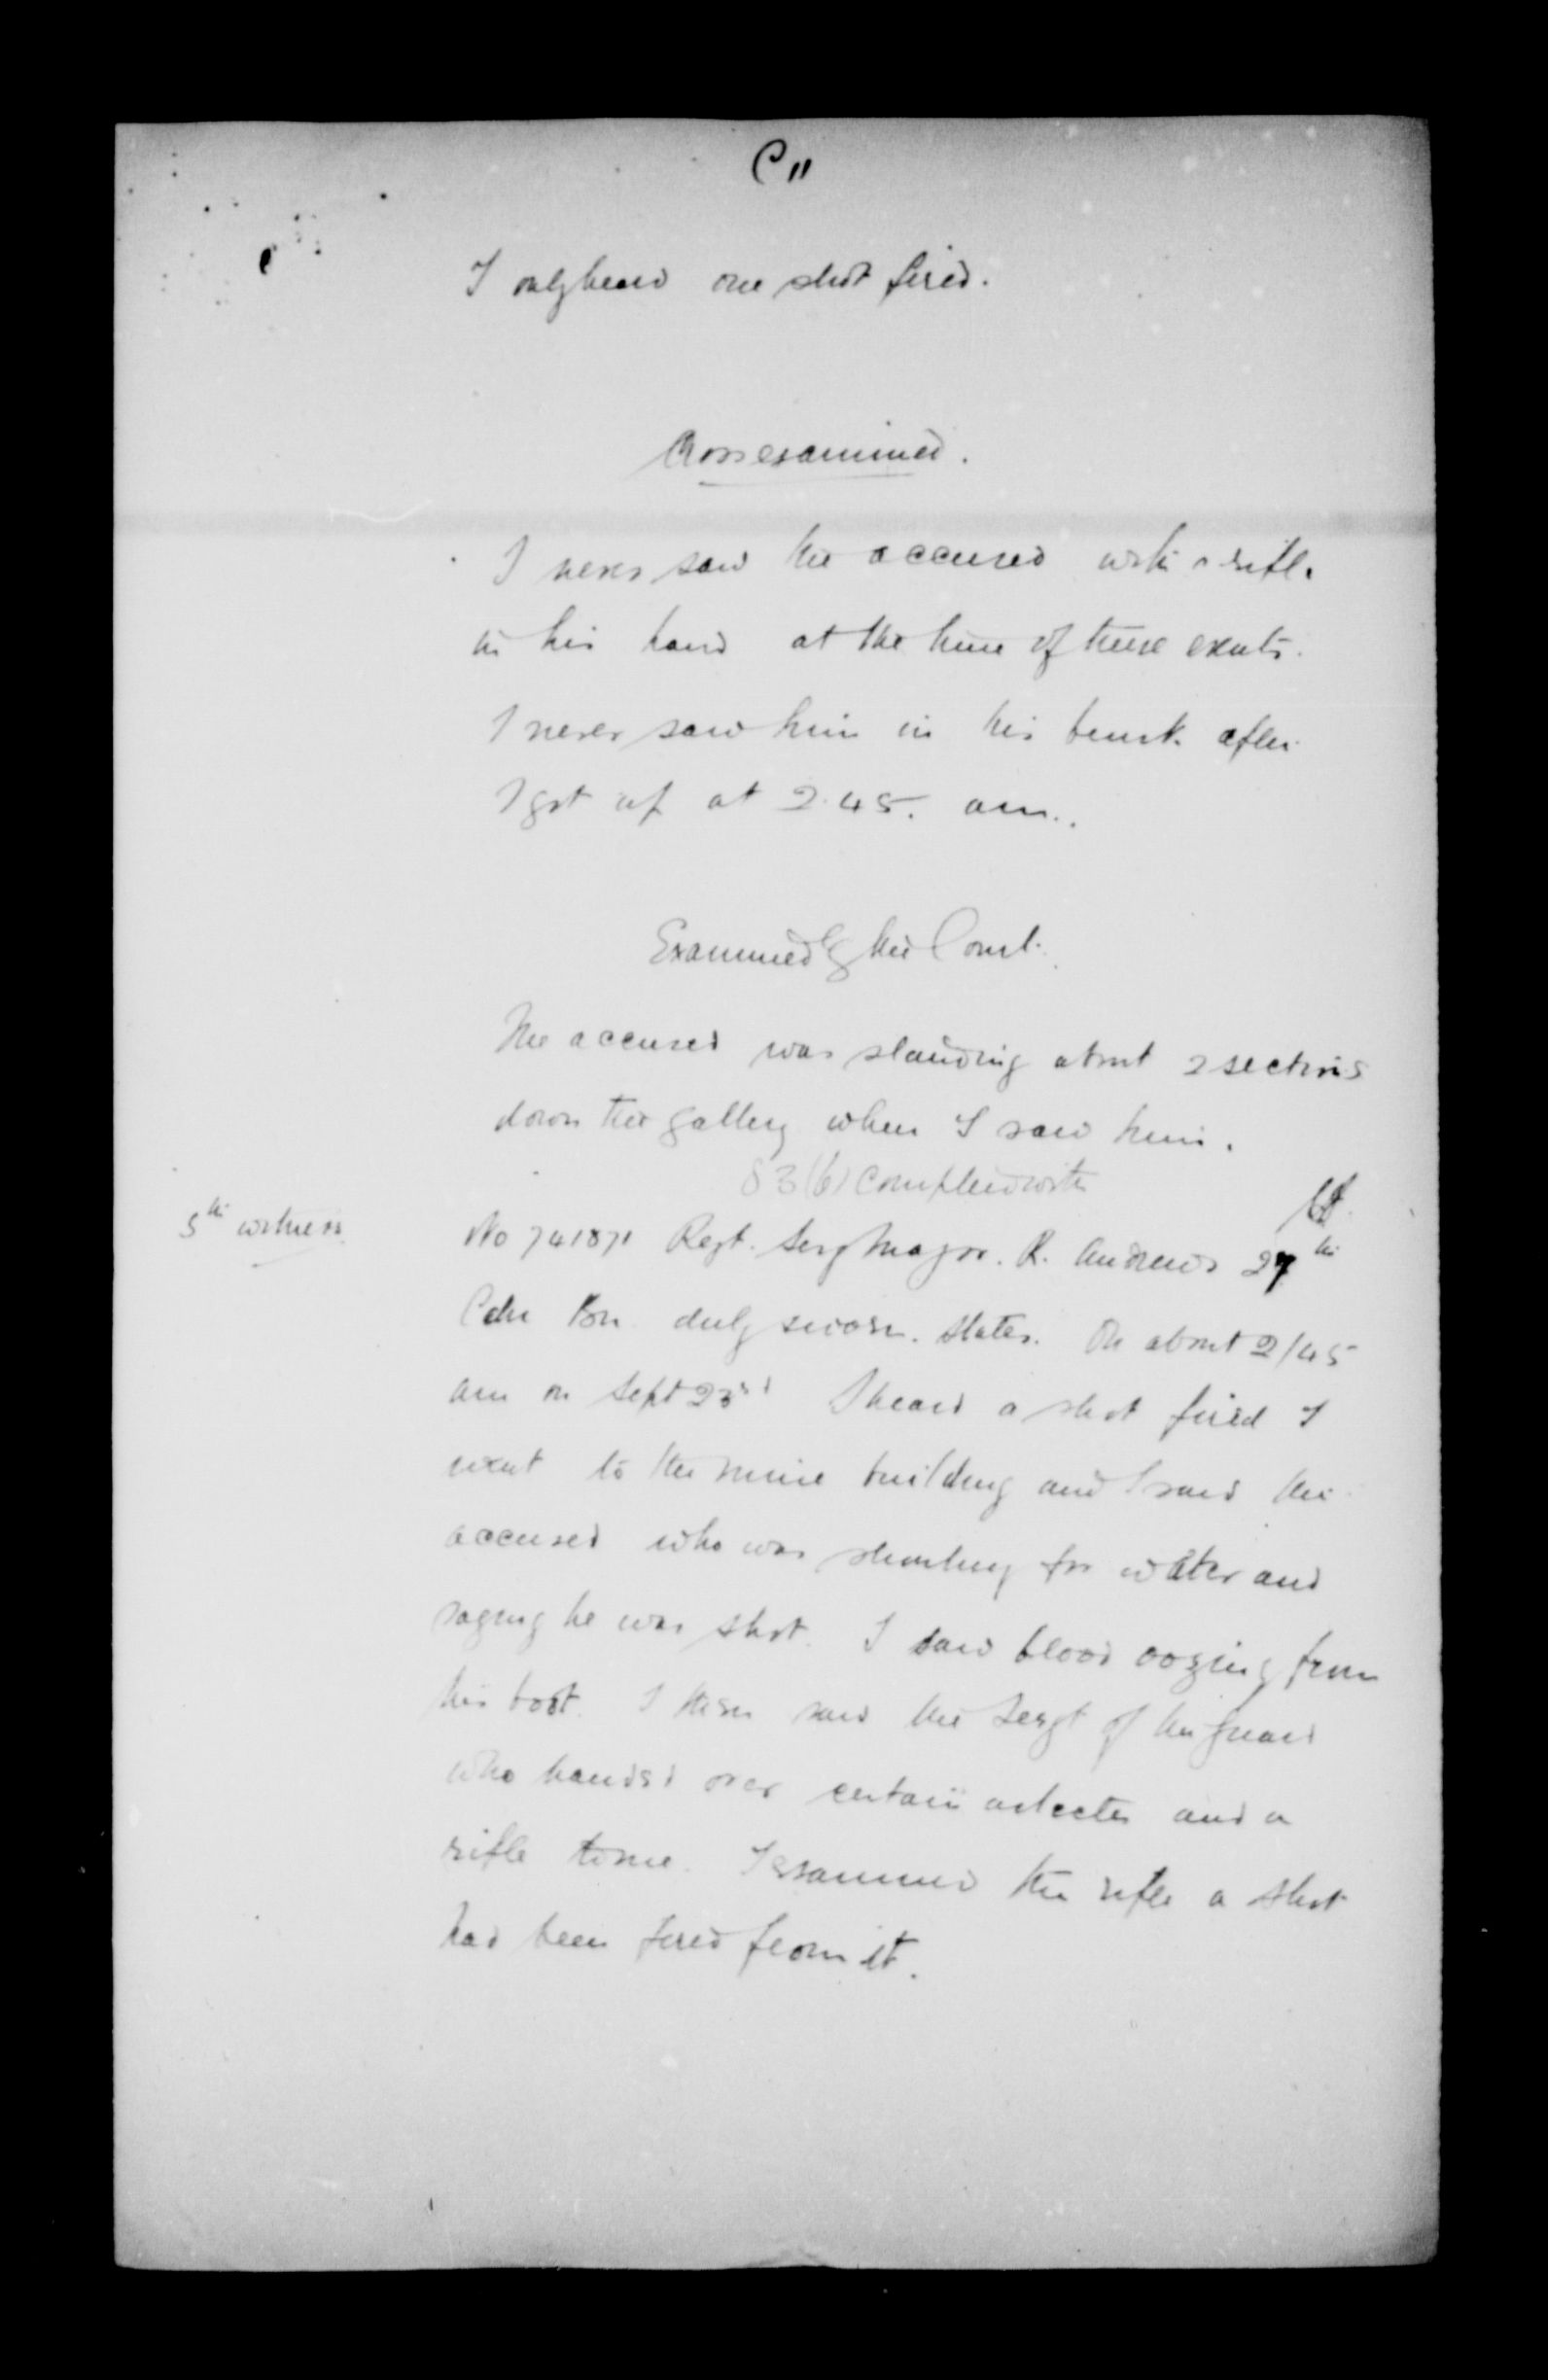 C 11
I only heard one shot fired.
Cross examined.
I never saw the accused with a rifle
in his hand at the time of these events.
I never saw him in his bunk after
I got up at 2.45. am.
Examined by the Court.
The accused was standing about 2 sections
down the gallery when I saw him.
83(b) complied with
5th witness
No 741871 Regt. Serg Major. R. Andrews 27th
Cdn Bn duly sworn. States. On about 2/45
am on Sept 23rd I heard a shot fired I
went to the mine building and I saw the
accused who was shouting for water and
saying he was shot. I saw blood oozing from
his boot. I then saw the Sergt of the guard
who handed over certain articles and a
rifle to me. I examined the rifle a shot
had been fired from it.